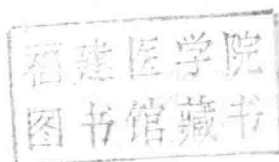 福建医学院
图书馆藏书